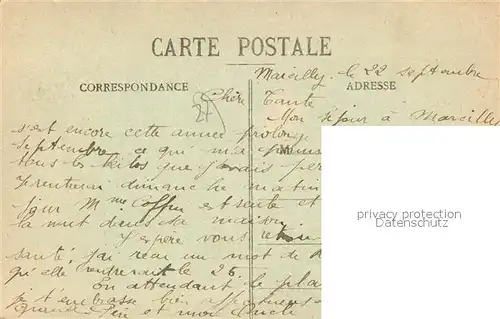 CARTE POSTALE
CORRESPONDANCE
ADRESSE
Marcilly le 22 septembre
27
Chère Tante
Mon séjour à Marcilly
s'est encore cette année prolong
septembre ce qui m'a
tous les kilos que j'avais per
dimanche matin
jour Mme est seule et
la nuit dans sa maison
J'espère vous
santé, j'ai reçu un mot de
qu'elle rentrerait le 26.
En attendant le plai
je t'embrasse bien
Grand Père et mon Oncle
M
privacy protection
Datenschutz